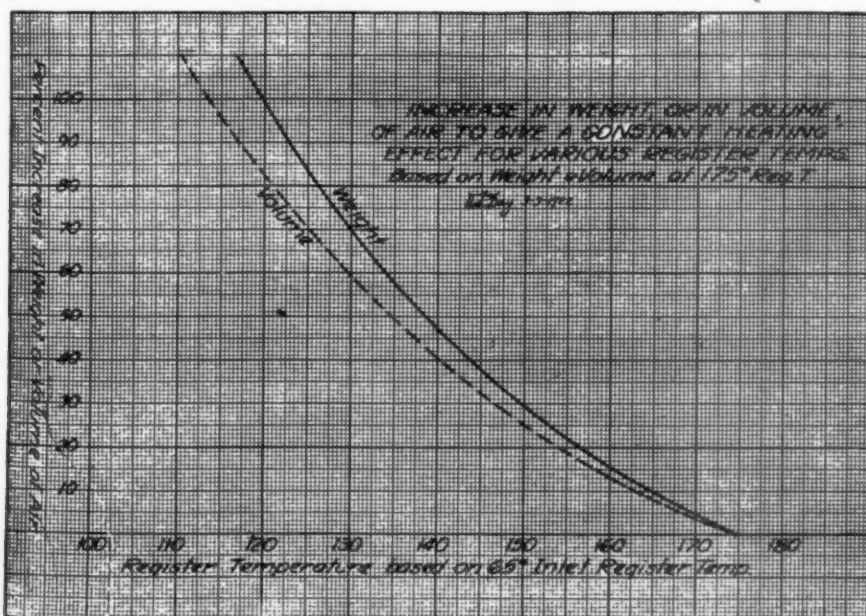 INCREASE IN WEIGHT, OR IN VOLUME,
OF AIR TO GIVE A CONSTANT HEATING
EFFECT FOR VARIOUS REGISTER TEMPS.
Based on Weight & Volume at 175° Reg. T
Percent Increase in Weight or Volume of Air
100
90
80
70
60
50
40
30
20
10
Volume
Weight
100 110 120 130 140 150 160 170 180
Register Temperature based on 65° Inlet Register Temp.